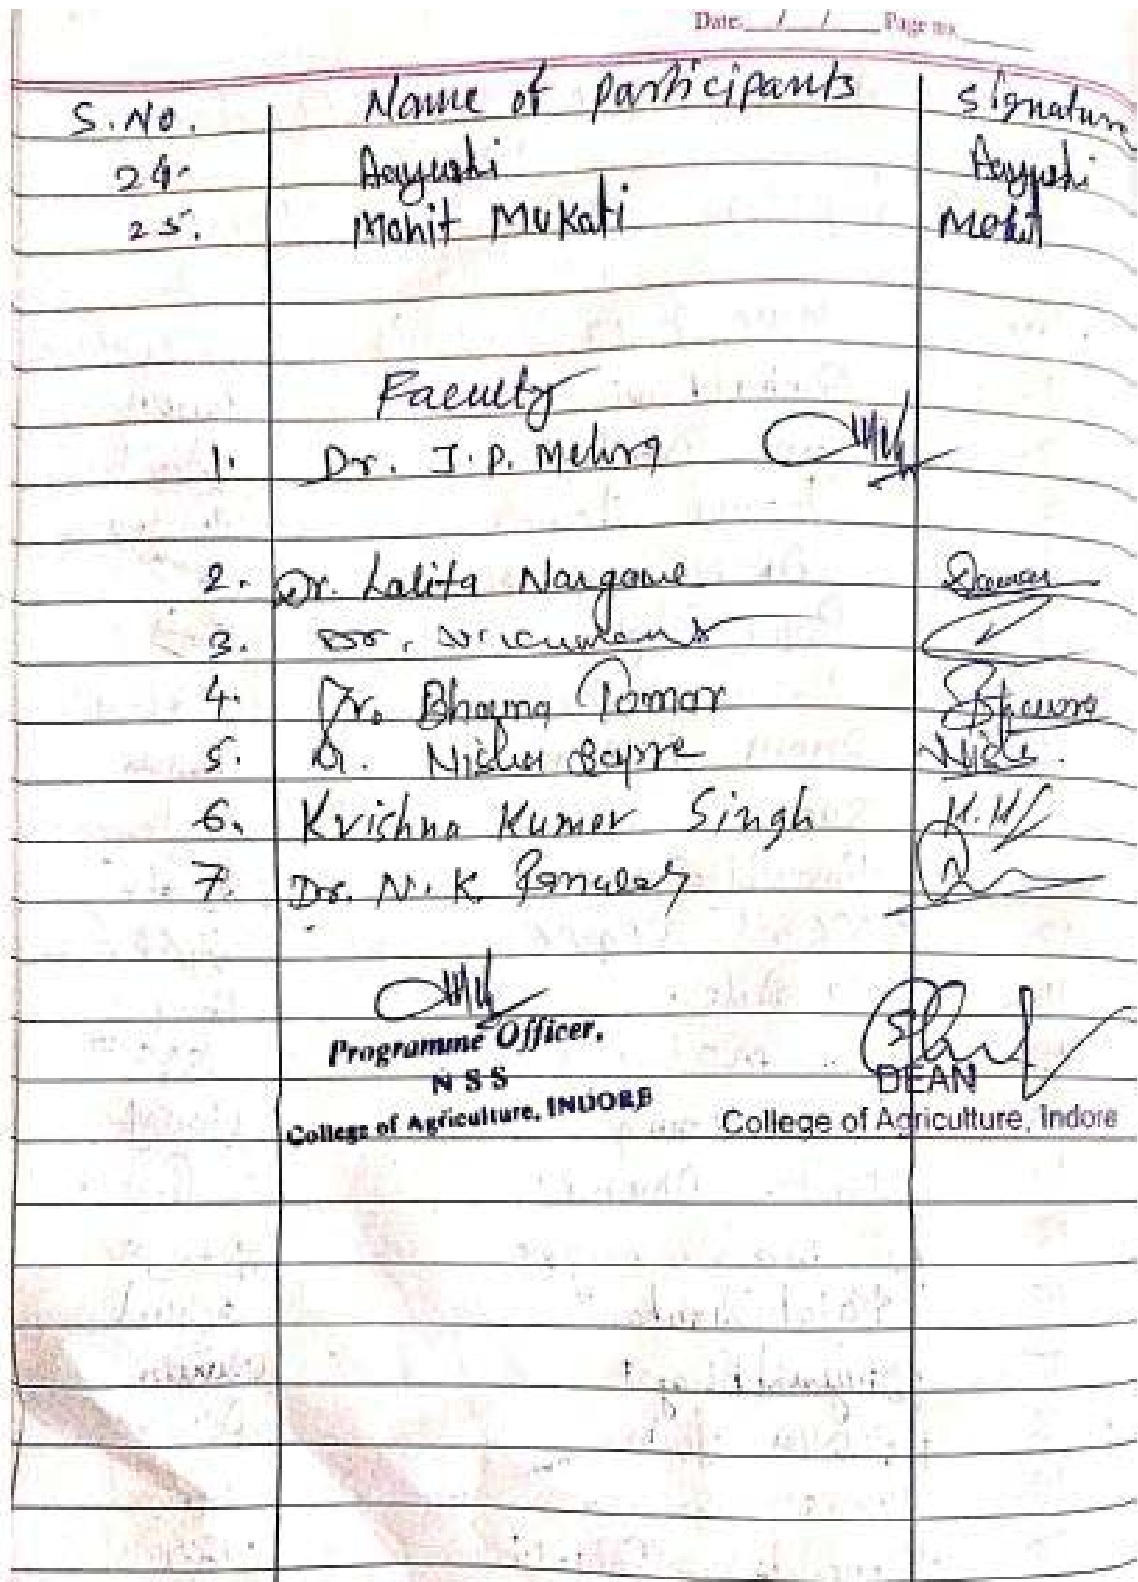 Date. / / Page no.
S.No. Name of participants Signature
24. Aayushi Aayushi
25. Mohit Mukati Mohit
Faculty
1. Dr. J.P. Mehra
2. Dr. Lalita Nargawe
3. Dr.
4. Dr. Bhagma Tomar
5. Dr. Nisha Sapre
6. Krichna Kumar Singh
7. Dr. N.K.
Programme Officer,
NSS
College of Agriculture, INDORE
DEAN
College of Agriculture, Indore